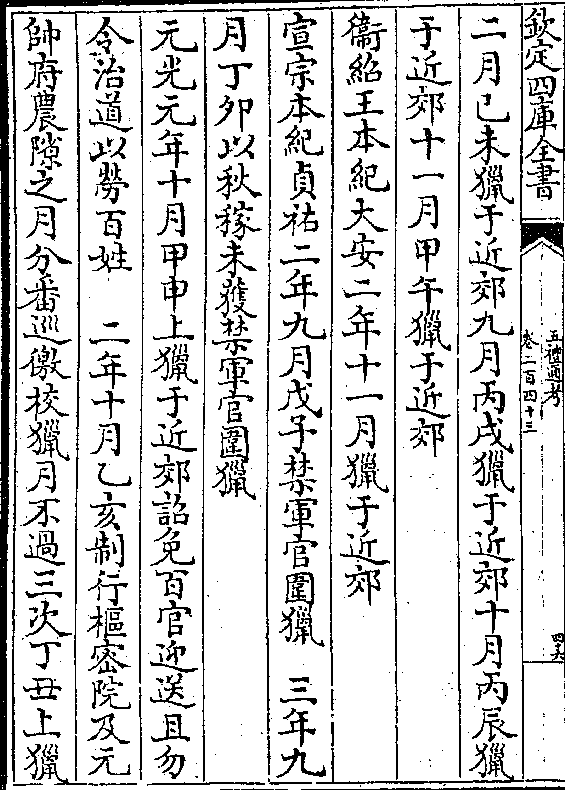 欽定四庫全書
五禮通考
卷二百四十三
四六
二月己未獵于近郊九月丙戌獵于近郊十月丙辰獵
于近郊十一月甲午獵于近郊
衞紹王本紀大安二年十一月獵于近郊
宣宗本紀貞祐二年九月戊子禁軍官圍獵　三年九
月丁夘以秋稼未穫禁軍官圍獵
元光元年十月甲申上獵于近郊詔免百官迎送且勿
令治道以勞百姓　二年十月乙亥制行樞密院及元
帥府農隙之月分番巡儆校獵月不過三次丁丑上獵